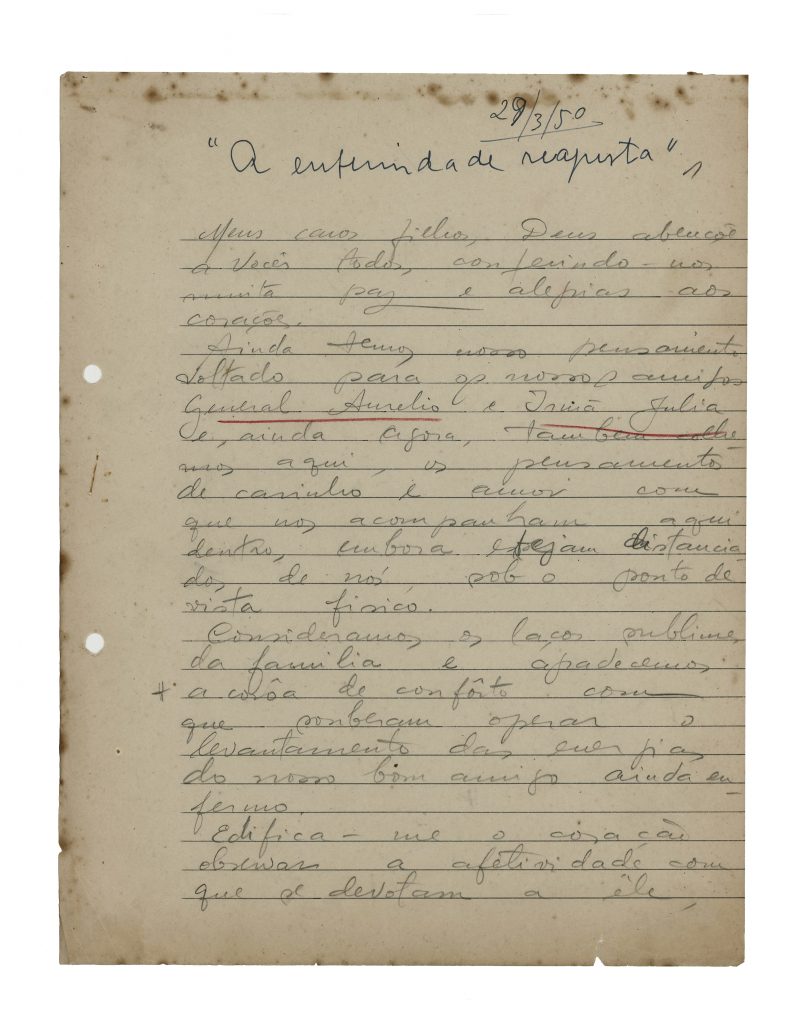 29/3/50
"A enfermidade reajusta" 1
Meus caros filhos, Deus abençôe
a Vocês todos, conferindo-nos
muita paz e alegrias aos
corações.
Ainda temos nosso pensamento
voltado para os nossos amigos
General Aurelio e Irmã Julia
e, ainda agora, tambem colhe-
mos aqui, os pensamentos
de carinho e amor com
que nos acompanham aqui
dentro, embora estejam distancia-
dos, de nós, sob o ponto de
vista fisico.
Consideramos os laços sublimes
da familia e agradecemos
+ a corôa de confôrto com
que souberam operar o
levantamento das energias
do nosso bom amigo ainda en-
fermo.
Edifica-me o coração
observar a afetividade com
que se devotam a êle,